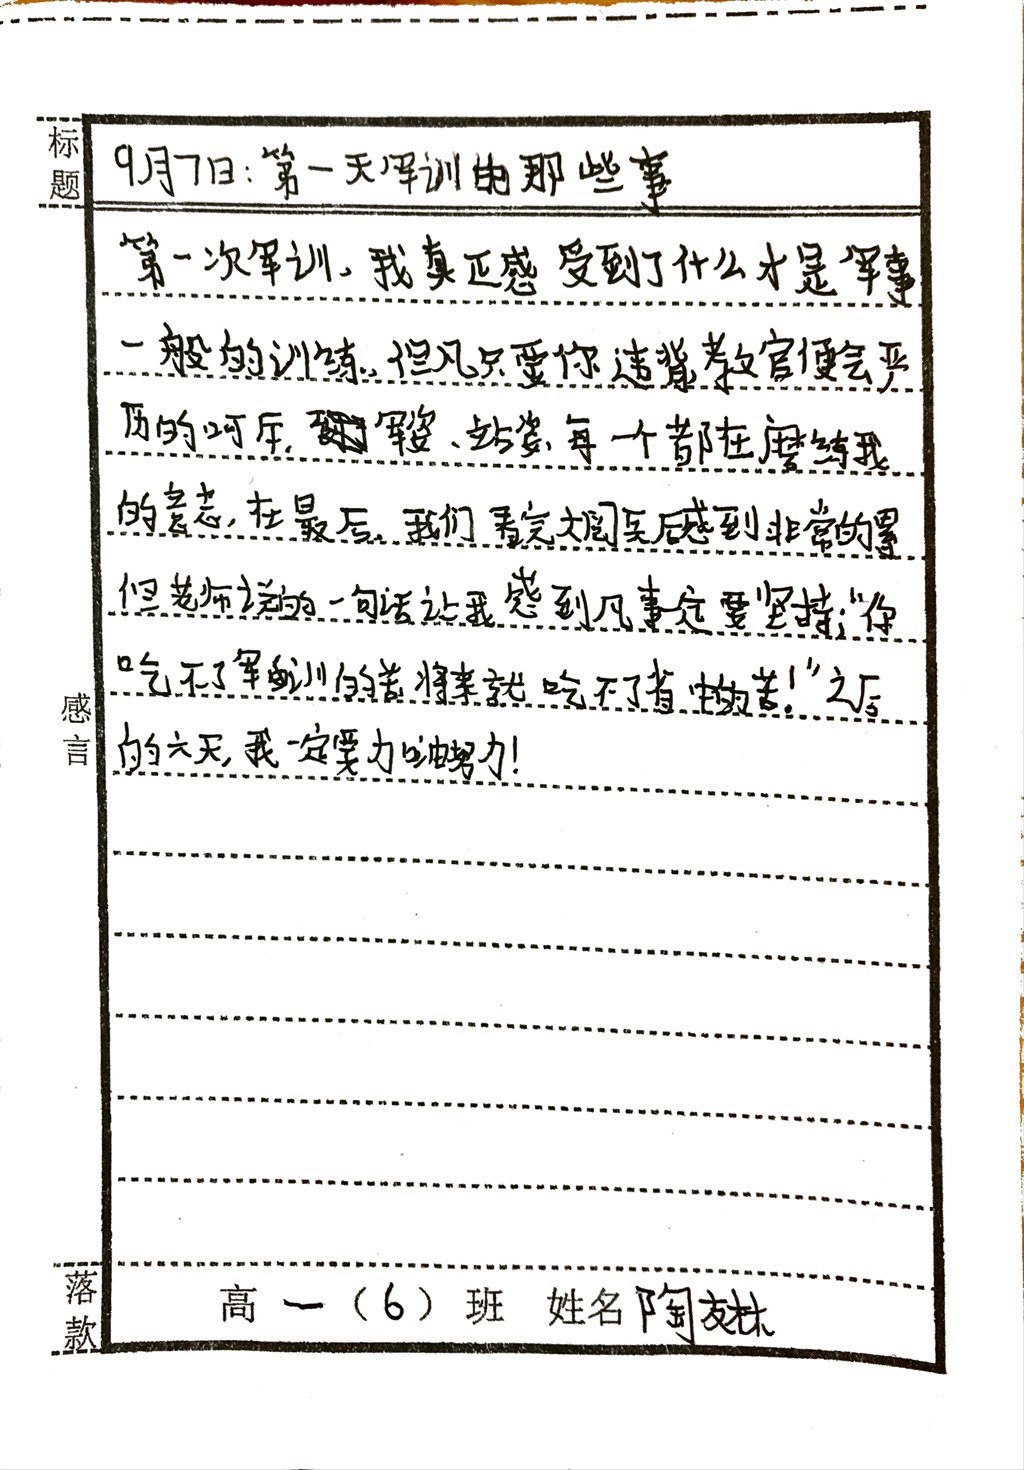 标题
9月7日:第一天军训的那些事
第一次军训、我真正感受到了什么才是军事
一般的训练,但凡只要你违背教官便会严
厉的呵斥,军姿、站姿,每一个都在磨练我
的意志,在最后,我们看完大阅兵后感到非常的累
但老师说的一句话让我感到凡事定要坚持;“你
吃不了军训的苦将来就吃不了的苦!”之后
的六天,我一定要加油努力!
感言
落款
高一(6)班 姓名陶友林